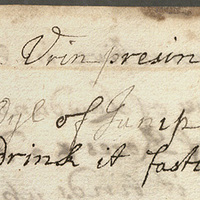 Vrin presin
Oyl of Junip
Drink it fasti